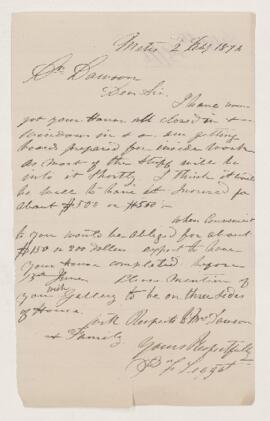 Metis 2 Feby 1892
Dr Dawson
Dear Sir
I have now
got your House all closed in &
Windows in & am getting
board prepared for inside work
as most of the Stuff will be
into it shortly I think it will
be well to have it Insured for
about $500 or $550 :-
When Convenient
to you would be obliged for about
$150 or 200 dollars expect to have
your House completed before
15th June Please mention if
you wish Gallery to be on three sides
of House.
with Respects to Mrs Dawson
& Family
Yours Respectfully